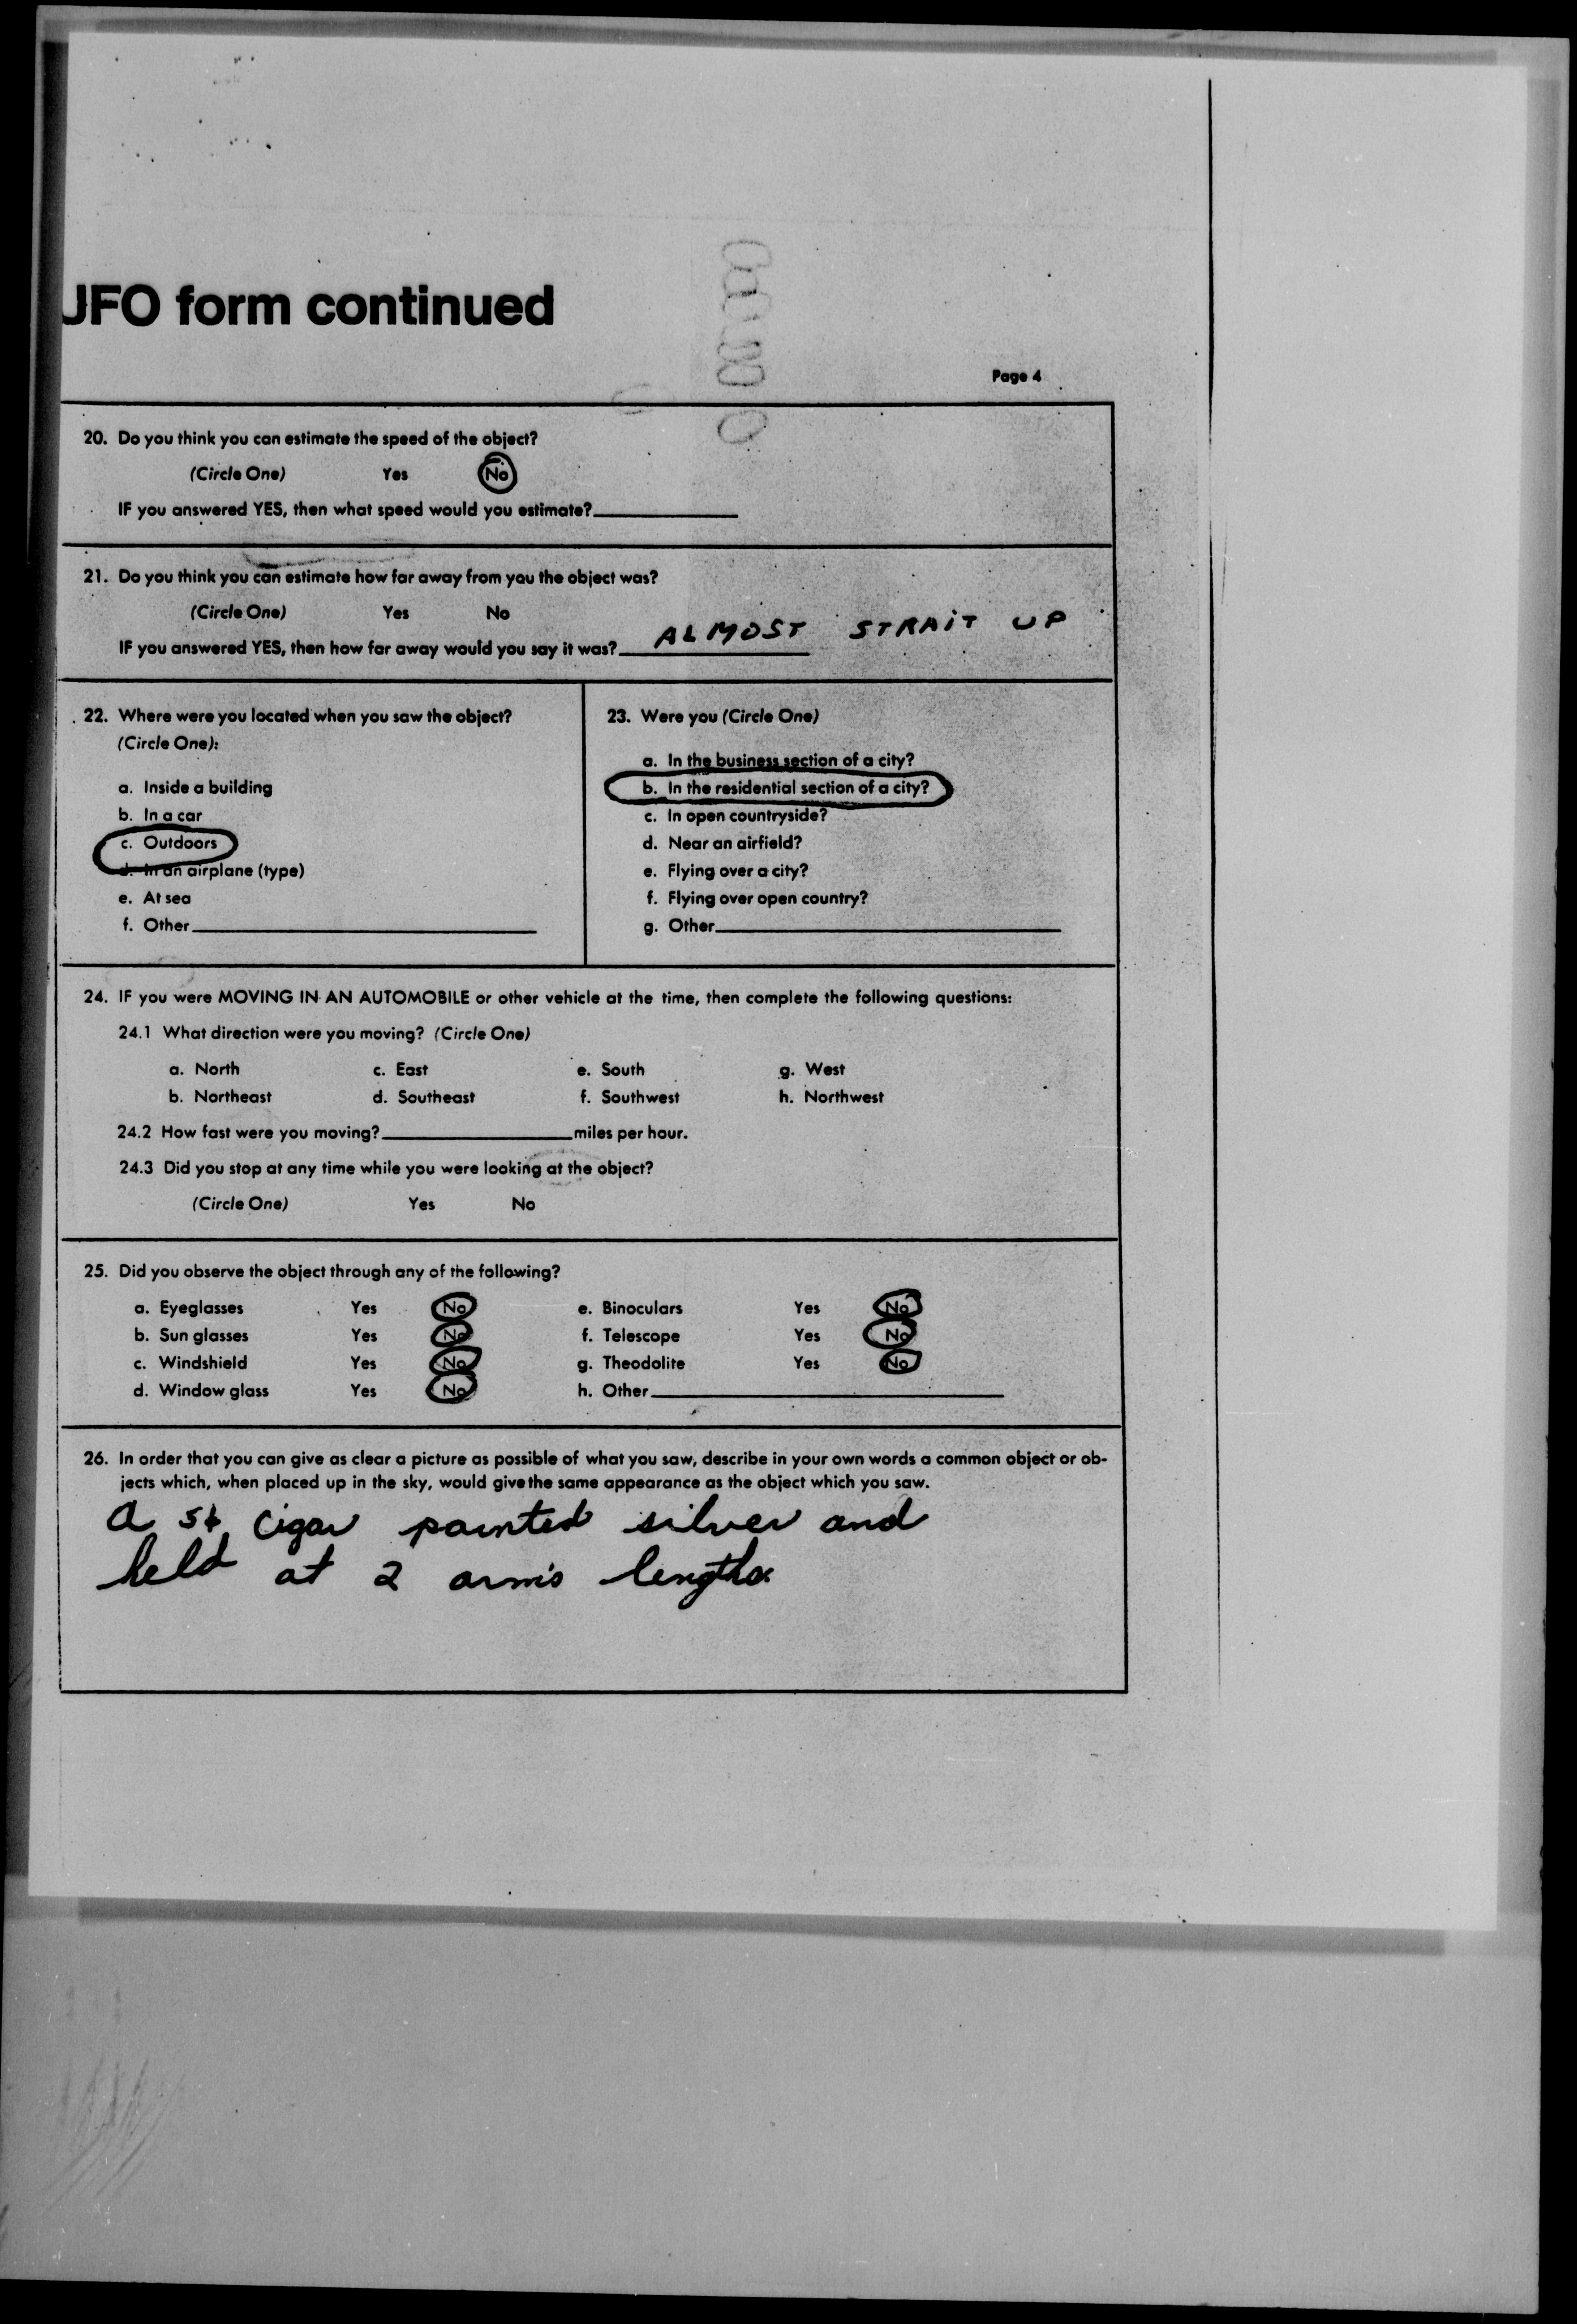 UFO form continued
Page 4
20. Do you think you can estimate the speed of the object?
(Circle One) Yes No
IF you answered YES, then what speed would you estimate?
21. Do you think you can estimate how far away from you the object was?
(Circle One) Yes No
IF you answered YES, then how far away would you say it was? ALMOST STRAIT UP
22. Where were you located when you saw the object?
(Circle One):
a. Inside a building
b. In a car
c. Outdoors
d. In an airplane (type)
e. At sea
f. Other
23. Were you (Circle One)
a. In the business section of a city?
b. In the residential section of a city?
c. In open countryside?
d. Near an airfield?
e. Flying over a city?
f. Flying over open country?
g. Other
24. IF you were MOVING IN AN AUTOMOBILE or other vehicle at the time, then complete the following questions:
24.1 What direction were you moving? (Circle One)
a. North c. East e. South g. West
b. Northeast d. Southeast f. Southwest h. Northwest
24.2 How fast were you moving? miles per hour.
24.3 Did you stop at any time while you were looking at the object?
(Circle One) Yes No
25. Did you observe the object through any of the following?
a. Eyeglasses Yes No e. Binoculars Yes No
b. Sun glasses Yes No f. Telescope Yes No
c. Windshield Yes No g. Theodolite Yes No
d. Window glass Yes No h. Other
26. In order that you can give as clear a picture as possible of what you saw, describe in your own words a common object or ob-
jects which, when placed up in the sky, would give the same appearance as the object which you saw.
a 5¢ cigar painted silver and
held at 2 arm's lengths